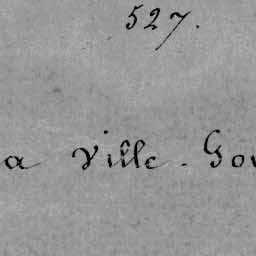 527.
a Ville-Gou